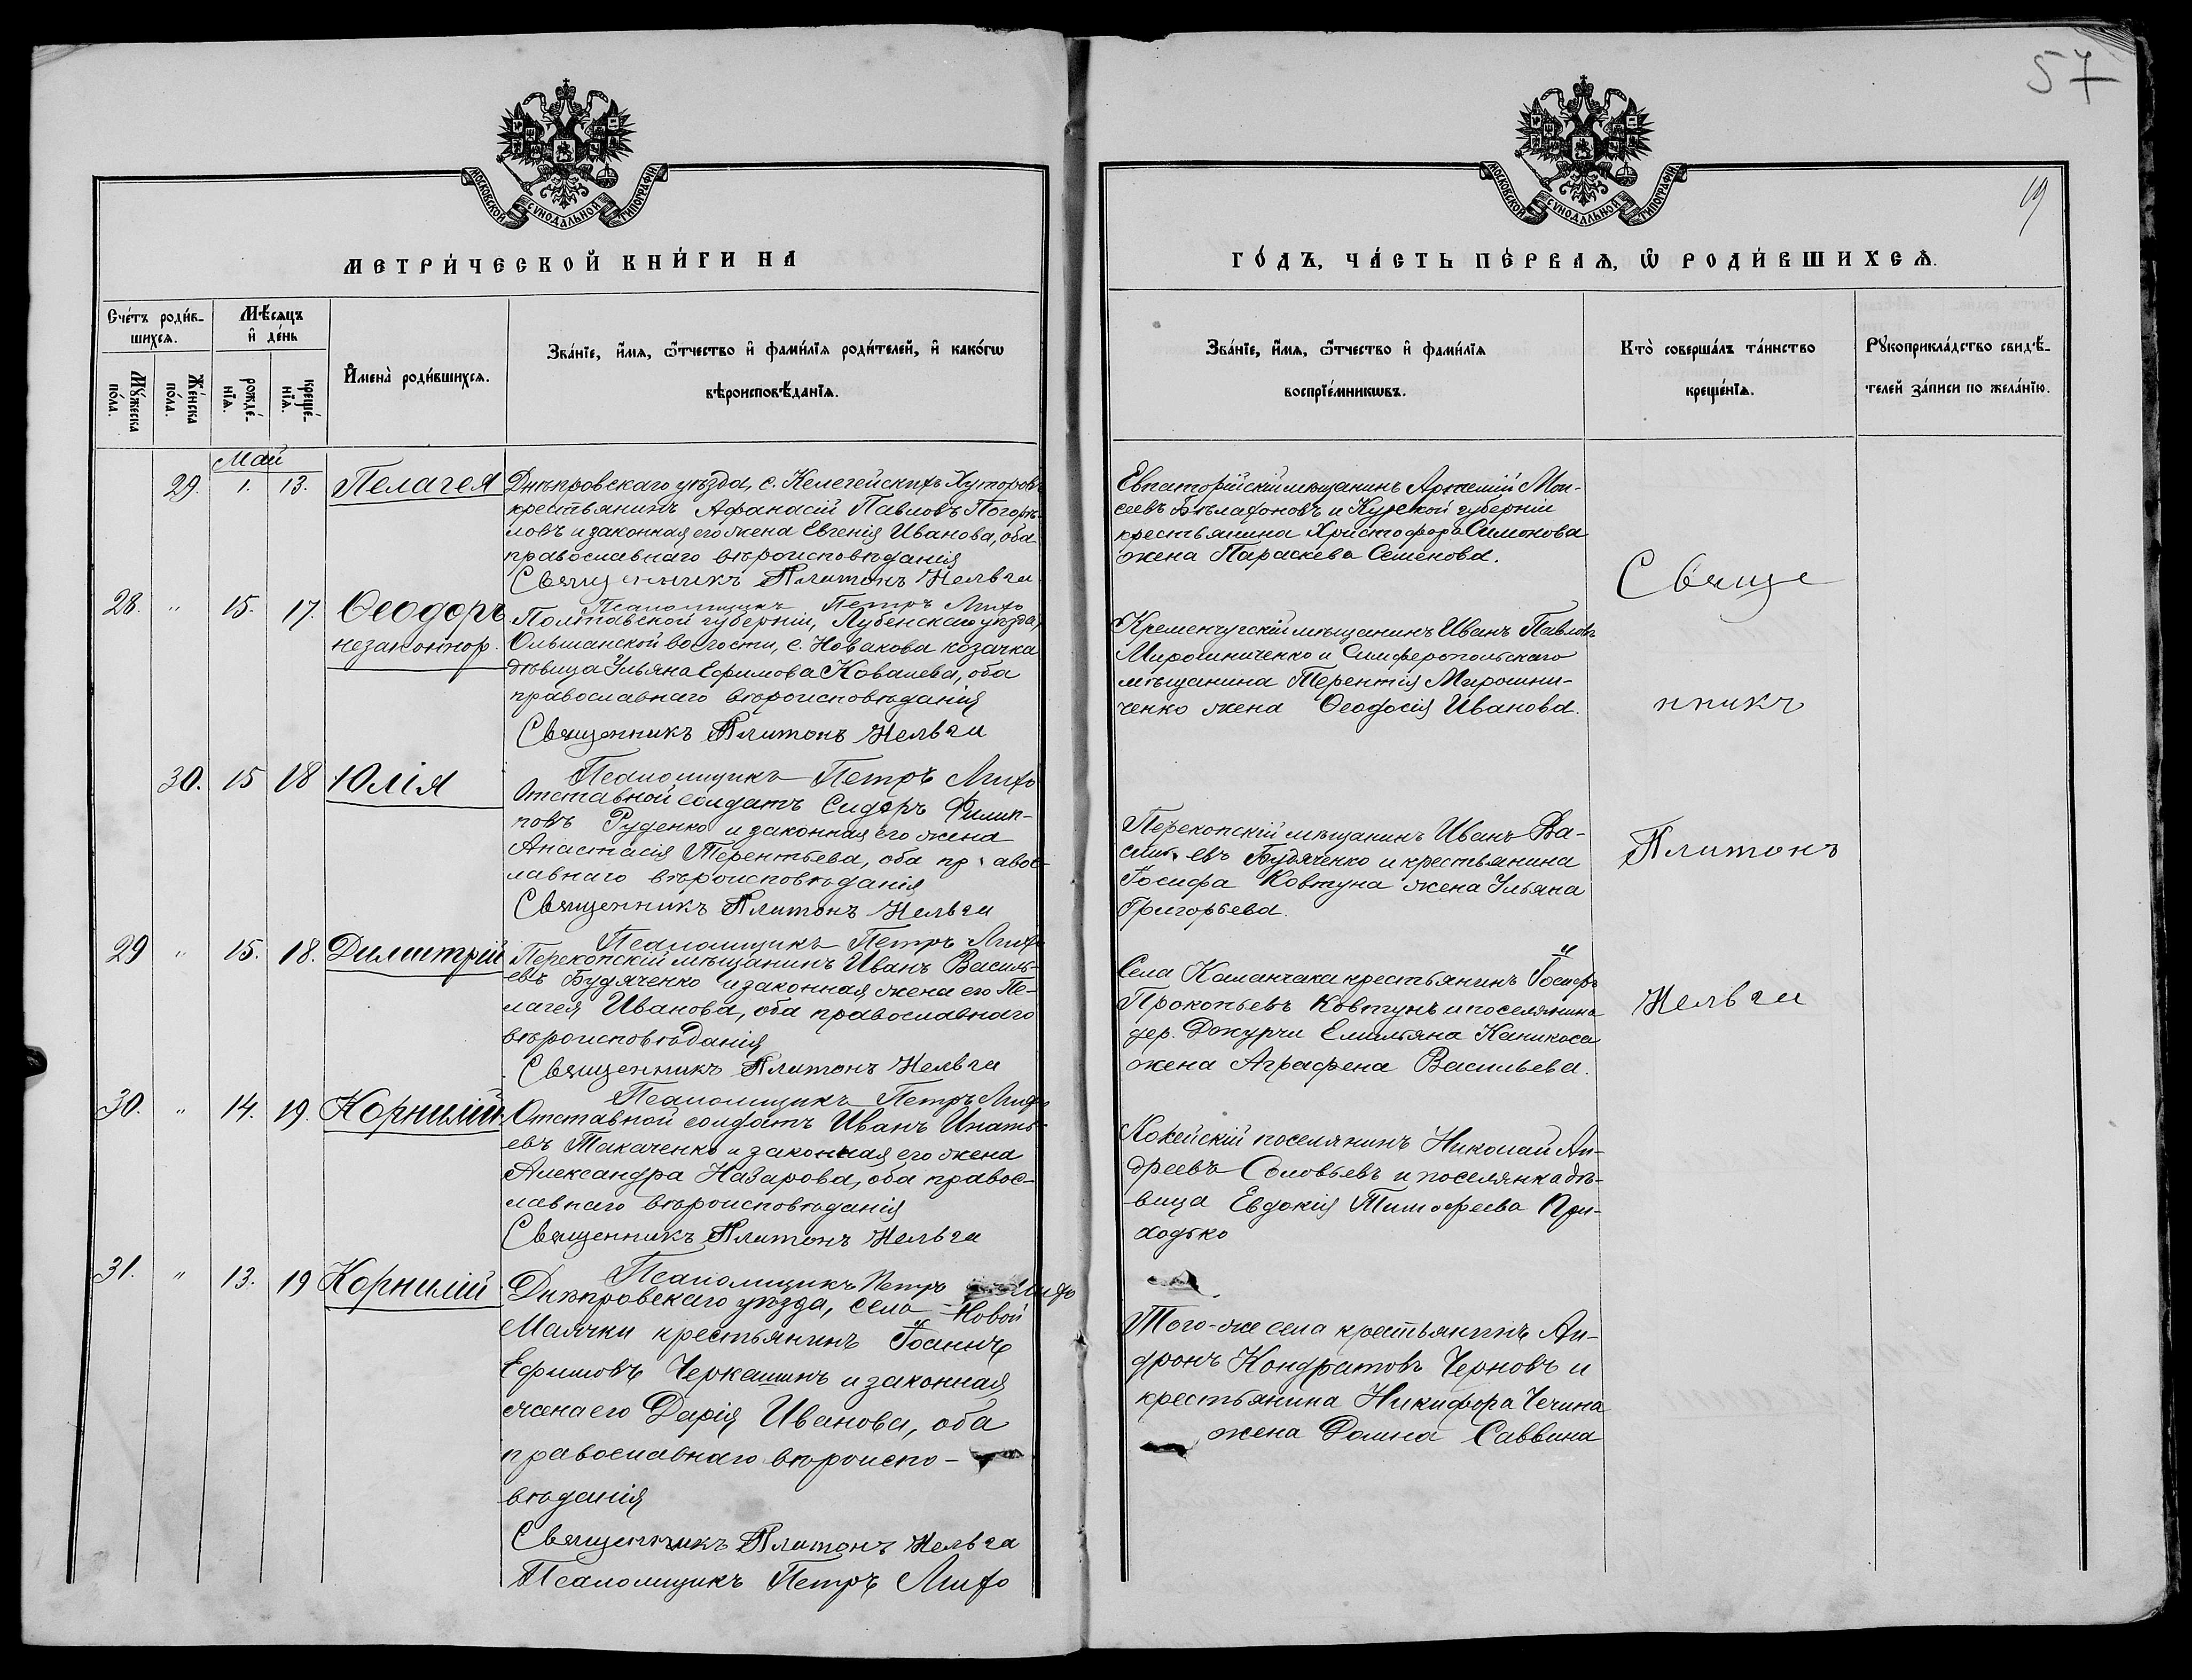 57
19
МОСКОВСКОЙ СѴНОДАЛЬНОЙ ТИПОГРАФІИ
МОСКОВСКОЙ СѴНОДАЛЬНОЙ ТИПОГРАФІИ
МЕТРИ́ЧЕСКОЙ КНИ́ГИ НА
ГО́ДЪ, ЧА́СТЬ ПЕ́РВАѦ, Ѽ РОДИ́ВШИХСѦ.
Сче́тъ роди́в-
шихсѧ.
Мꙋ́жеска по́ла.
Же́нска по́ла.
Мѣ́сѧцъ
и де́нь
рожде́-
нїѧ.
креще́-
нїѧ.
И҆мена̀ роди́вшихсѧ.
Зва́нїе, и҆́мѧ, ѻ҆́тчество и҆ фами́лїѧ роди́телей, и҆ како́гѡ
вѣроисповѣ́данїѧ.
Зва́нїе, и҆́мѧ, ѻ҆́тчество и҆ фами́лїѧ
воспрїе́мникѡвъ.
Кто̀ соверша́лъ та́инство
креще́нїѧ.
Рꙋкоприкла́дство свидѣ́-
телей за́писи по жела́нїю.
Май
29. 1. 13. Пелагея
Днѣпровскаго уѣзда, с. Келегейскихъ Хуторовъ
крестьянинъ Афанасій Павловъ Погорѣ-
ловъ и законная его жена Евгенія Иванова, оба
православнаго вѣроисповѣданія
Священникъ Платонъ Нельга
Псаломщикъ Петръ
Евпаторійскій мѣщанинъ Артемій Мои-
сеевъ и Курской губерніи
крестьянина Христофора Симонова
жена Параскева Семенова.
28. " 15. 17. Ѳеодоръ
незаконнор.
Полтавской губерніи, Лубенскаго уѣзда,
Ольшанской волости, с. Новакова козачка
дѣвица Ульяна Ефимова Ковалева, оба
православнаго вѣроисповѣданія
Священникъ Платонъ Нельга
Псаломщикъ Петръ
Кременчугскій мѣщанинъ Иванъ Павловъ
Мирошниченко и Симферопольскаго
мѣщанина Терентія Мирошни-
ченко жена Ѳеодосія Иванова.
30. 15 18 Юлія
Отставной солдатъ Сидоръ Филип-
повъ Руденко и законная его жена
Анастасія Терентьева, оба правос-
лавнаго вѣроисповѣданія
Священникъ Платонъ Нельга
Псаломщикъ Петръ
Перекопскій мѣщанинъ Иванъ Ва-
сильевъ Будяченко и крестьянина
Іосифа Ковтуна жена Ульяна
Григорьева.
29 " 15. 18. Димитрій
Перекопскій мѣщанинъ Иванъ Василь-
евъ Будяченко и законная жена его Пе-
лагея Иванова, оба православнаго
вѣроисповѣданія
Священникъ Платонъ Нельга
Псаломщикъ Петръ
Села Каланчака крестьянинъ Іосифъ
Прокопьевъ Ковтунъ и поселянина
дер. Джурчи Емильяна
жена Аграфена Васильева.
30. " 14. 19. Корнилій
Отставной солдатъ Иванъ Игнать-
евъ Ткаченко и законная его жена
Александра Назарова, оба правос-
лавнаго вѣроисповѣданія
Священникъ Платонъ Нельга
Псаломщикъ Петръ
поселянинъ Николай Ан-
дреевъ Соловьевъ и поселянка дѣ-
вица Евдокія Тимофеева При-
ходько
31. " 13. 19 Корнилій
Днѣпровскаго уѣзда, села Новой
Маячки крестьянинъ Іоаннъ
Ефимовъ Черкашинъ и законная
жена его Дарія Иванова, оба
православнаго вѣроиспо-
вѣданія
Священникъ Платонъ Нельга
Псаломщикъ Петръ
Того-же села крестьянинъ Ан-
дронъ Кондратовъ Черновъ и
крестьянина Никифора Чечина
жена Домна Саввина
Свяще
нникъ
Платонъ
Нельга